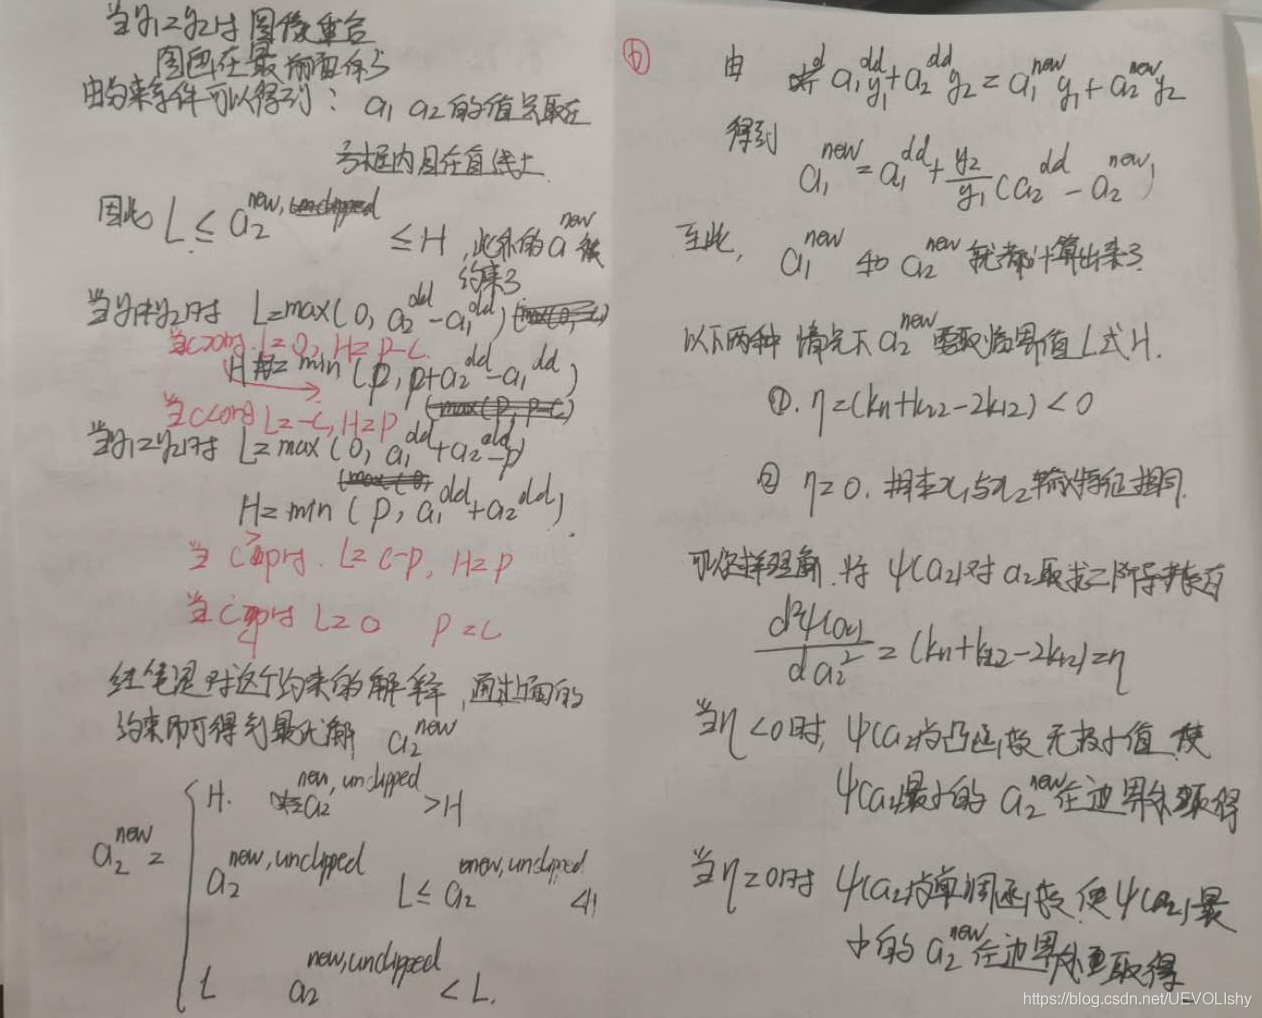 当y₁=y₂时 图像重合
图画在最前面的
由约束条件可以得到： a₁ a₂的值只取在
方框内且在直线上
因此 L ≤ a₂^{new, unclipped} ≤ H ,此外的a^{new}被
约束了
当y₁≠y₂时 L=max(0, a₂^{old}-a₁^{old})
当c>0时. L=0, H=p-c.
H = min (p, p+a₂^{old}-a₁^{old})
当c<0时 L=-c, H=p
当y₁=y₂时 L=max (0, a₁^{old}+a₂^{old}-p)
H=min (p, a₁^{old}+a₂^{old})
当c>p时. L=c-p, H=p
当c<p时 L=0 p=c
红笔是对这个约束的解释,通过上面的
约束即可得到最优解 a₂^{new}
H. a₂^{new, unclipped} >H
a₂^{new} = a₂^{new,unclipped} L≤ a₂^{new,unclipped} ≤H
L a₂^{new,unclipped} < L.
⑥ 由 a₁^{old}y₁+a₂^{old}y₂=a₁^{new}y₁+a₂^{new}y₂
得到
a₁^{new}=a₁^{old}+y₂/y₁(a₂^{old}-a₂^{new})
至此, a₁^{new} 和 a₂^{new} 就都计算出来了.
以下两种 情况下 a₂^{new} 要取临界值L或H.
①. η=(k₁₁+k₂₂-2k₁₂)<0
② η=0. x₁与x₂输入特征相同.
可这样理解.将 ψ(a₂)对 a₂取求二阶导数有
d²ψ(a₂)/da₂² = (k₁₁+k₂₂-2k₁₂)=η
当η<0时, ψ(a₂)为凸函数 无极小值 使
ψ(a₂)最小的 a₂^{new}在边界处取得
当η=0时 ψ(a₂)为单调函数,使ψ(a₂)最
小的 a₂^{new}在边界处取得
https://blog.csdn.net/UEVOLIshy